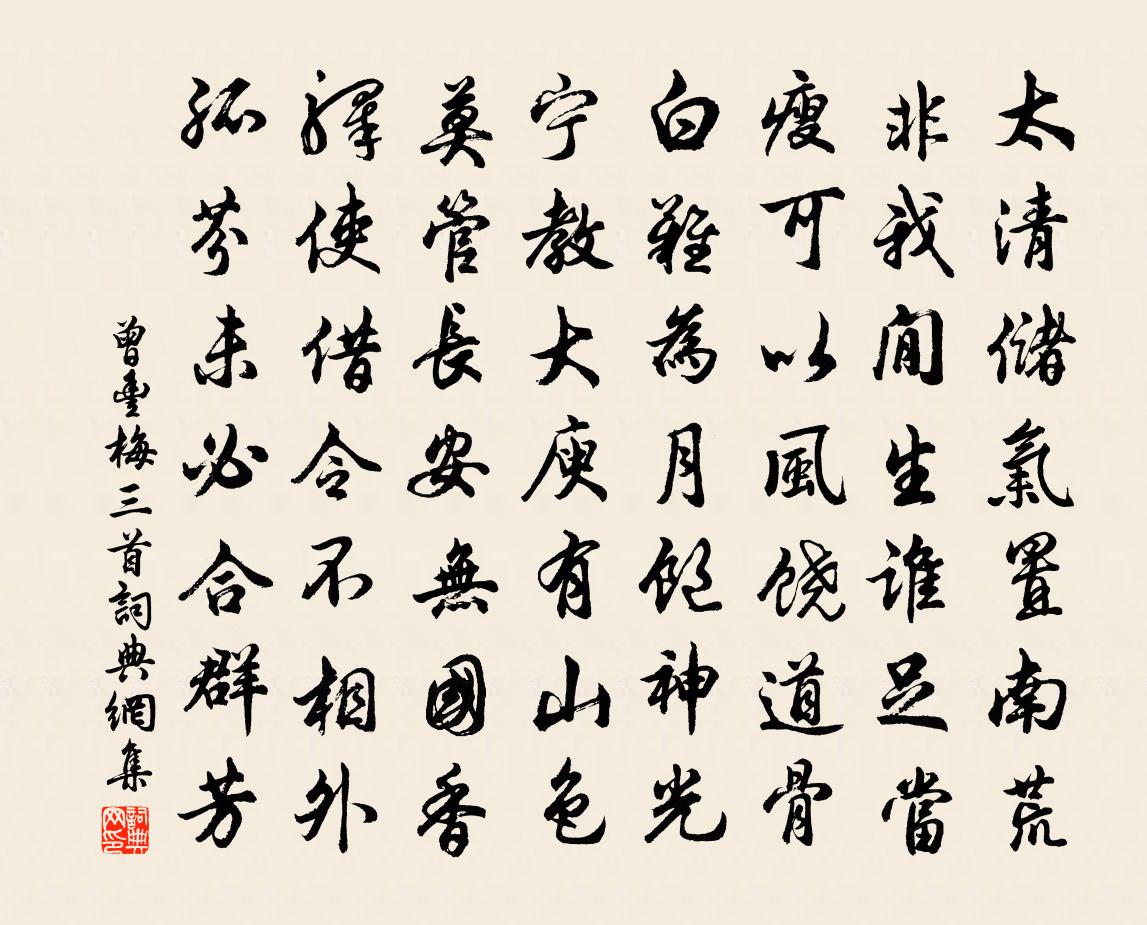 太清儲氣置南荒
非我閒生誰足當
瘦可以風饒道骨
白難為月飽神光
宁教大庾有山色
莫管長安無國香
驛使借令不相外
孤芬未必合群芳
曾豊梅三首詞典網集
詞典网印